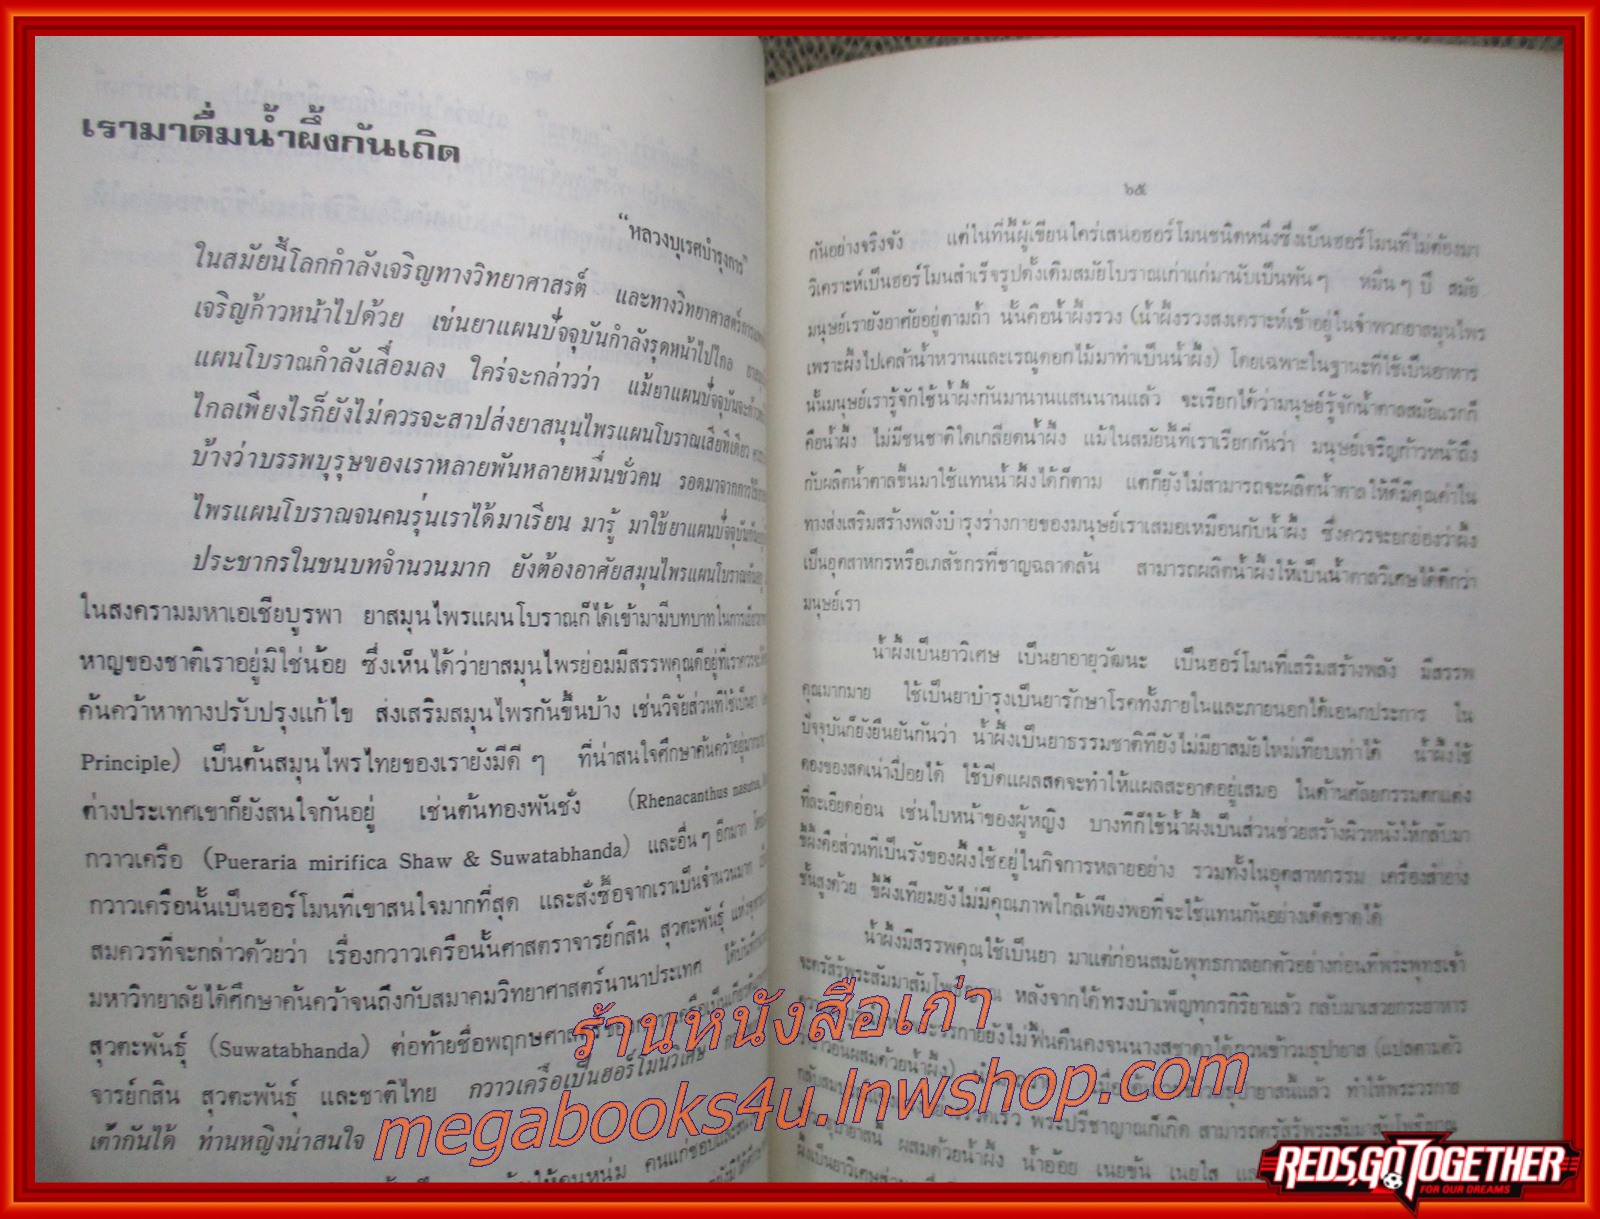 เรามาดื่มน้ำผึ้งกันเถิด
"หลวงบุเรศบำรุงการ"
ในสมัยนี้โลกกำลังเจริญทางวิทยาศาสรต์ และทางวิทยาศาสตร์การแพทย์
เจริญก้าวหน้าไปด้วย เช่นยาแผนปัจจุบันกำลังรุดหน้าไปไกล
แผนโบราณกำลังเสื่อมลง ใคร่จะกล่าวว่า แม้ยาแผนปัจจุบันจะก้าวหน้า
ไกลเพียงไรก็ยังไม่ควรจะสาปส่งยาสนุนไพรแผนโบราณเสียทีเดียว
บ้างว่าบรรพบุรุษของเราหลายพันหลายหมื่นชั่วคน รอดมาจากการใช้
ไพรแผนโบราณจนคนรุ่นเราได้มาเรียน มารู้ มาใช้ยาแผนปัจจุบันกัน
ประชากรในชนบทจำนวนมาก ยังต้องอาศัยสมุนไพรแผนโบราณกันอยู่
ในสงครามมหาเอเชียบูรพา ยาสมุนไพรแผนโบราณก็ได้เข้ามามีบทบาทในการ
หาญของชาติเราอยู่มิใช่น้อย ซึ่งเห็นได้ว่ายาสมุนไพรย่อมมีสรรพคุณดีอยู่ที่เราควรจะ
ค้นคว้าหาทางปรับปรุงแก้ไข ส่งเสริมสมุนไพรกันขึ้นบ้าง เช่นวิจัยส่วนที่ใช้เป็นยา
Principle) เป็นต้นสมุนไพรไทยของเรายังมีดี ๆ ที่น่าสนใจศึกษาค้นคว้าอยู่มาก
ต่างประเทศเขาก็ยังสนใจกันอยู่ เช่นต้นทองพันชั่ง (Rhenacanthus nasutus,
กวาวเครือ (Pueraria mirifica Shaw & Suwatabhanda) และอื่น ๆ อีกมาก
กวาวเครือนั้นเป็นฮอร์โมนที่เขาสนใจมากที่สุด และสั่งซื้อจากเราเป็นจำนวนมาก
สมควรที่จะกล่าวด้วยว่า เรื่องกวาวเครือนั้นศาสตราจารย์กสิน สุวตะพันธุ์
มหาวิทยาลัยได้ศึกษาค้นคว้าจนถึงกับสมาคมวิทยาศาสตร์นานาประเทศ
สุวตะพันธุ์ (Suwatabhanda) ต่อท้ายชื่อพฤกษศาสตร์ของกวาวเครือเป็นเกียรติ
จารย์กสิน สุวตะพันธุ์ และชาติไทย กวาวเครือเป็นฮอร์โมนวิเศษ
เต้ากันได้ ท่านหญิงน่าสนใจ
ให้คนหนุ่ม
๖๕
กันอย่างจริงจัง แต่ในที่นี้ผู้เขียนใคร่เสนอฮอร์โมนชนิดหนึ่งซึ่งเป็นฮอร์โมนที่ไม่ต้องมา
วิเคราะห์เป็นฮอร์โมนสำเร็จรูปดั้งเดิมสมัยโบราณเก่าแก่มานับเป็นพัน ๆ หมื่น ๆ ปี สมัย
มนุษย์เรายังอาศัยอยู่ตามถ้ำ นั้นคือน้ำผึ้งรวง (น้ำผึ้งรวงสงเคราะห์เข้าอยู่ในจำพวกยาสมุนไพร
เพราะผึ้งไปเคล้าน้ำหวานและเรณูดอกไม้มาทำเป็นน้ำผึ้ง) โดยเฉพาะในฐานะที่ใช้เป็นอาหาร
นั้นมนุษย์เรารู้จักใช้น้ำผึ้งกันมานานแสนนานแล้ว จะเรียกได้ว่ามนุษย์รู้จักน้ำตาลสมัยแรกก็
คือน้ำผึ้ง ไม่มีชนชาติใดเกลียดน้ำผึ้ง แม้ในสมัยนี้ที่เราเรียกกันว่า มนุษย์เจริญก้าวหน้าถึง
กับผลิตน้ำตาลขึ้นมาใช้แทนน้ำผึ้งได้ก็ตาม แต่ก็ยังไม่สามารถจะผลิตน้ำตาลให้ดีมีคุณค่าใน
ทางส่งเสริมสร้างพลังบำรุงร่างกายของมนุษย์เราเสมอเหมือนกับน้ำผึ้ง ซึ่งควรจะยกย่องว่าผึ้ง
เป็นอุตสาหกรหรือเภสัชกรที่ชาญฉลาดล้น สามารถผลิตน้ำผึ้งให้เป็นน้ำตาลวิเศษได้ดีกว่า
มนุษย์เรา
น้ำผึ้งเป็นยาวิเศษ เป็นยาอายุวัฒนะ เป็นฮอร์โมนที่เสริมสร้างพลัง มีสรรพ
คุณมากมาย ใช้เป็นยาบำรุงเป็นยารักษาโรคทั้งภายในและภายนอกได้เอนกประการ ใน
ปัจจุบันก็ยังยืนยันกันว่า น้ำผึ้งเป็นยาธรรมชาติที่ยังไม่มียาสมัยใหม่เทียบเท่าได้ น้ำผึ้งใช้
ดองของสดเน่าเปื่อยได้ ใช้ปิดแผลสดจะทำให้แผลสะอาดอยู่เสมอ ในด้านศัลยกรรมตกแต่ง
ที่ละเอียดอ่อน เช่นใบหน้าของผู้หญิง บางทีก็ใช้น้ำผึ้งเป็นส่วนช่วยสร้างผิวหนังให้กลับมา
ขี้ผึ้งคือส่วนที่เป็นรังของผึ้งใช้อยู่ในกิจการหลายอย่าง รวมทั้งในอุตสาหกรรม เครื่องสำอาง
ชั้นสูงด้วย ขี้ผึ้งเทียมยังไม่มีคุณภาพใกล้เพียงพอที่จะใช้แทนกันอย่างเด็ดขาดได้
น้ำผึ้งมีสรรพคุณใช้เป็นยา มาแต่ก่อนสมัยพุทธกาลยกตัวอย่างก่อนที่พระพุทธเจ้า
จะตรัสรู้พระสัมมาสัมโพธิญาณ หลังจากได้ทรงบำเพ็ญทุกรกิริยาแล้ว กลับมาเสวยกระยาหาร
พระวรกายยังไม่ฟื้นคืนคงจนนางสุชาดาได้กวนข้าวมธุปายาส (แปลตามตัว
ว่าข้าวอ่อนผสมด้วยน้ำผึ้ง) ข้าวมธุปายาสนี้แล้ว ทำให้พระวรกาย
กลับสมบูรณ์ รวดเร็ว พระปรีชาญาณก็เกิด สามารถตรัสรู้พระสัมมาสัมโพธิญาณ
ผสมด้วยน้ำผึ้ง น้ำอ้อย เนยข้น เนยใส
ผึ้งเป็นยาวิเศษ
ร้านหนังสือเก่า
megabooks4u.lnwshop.com
REDS,GO TOGETHER
FOR OUR DREAMS